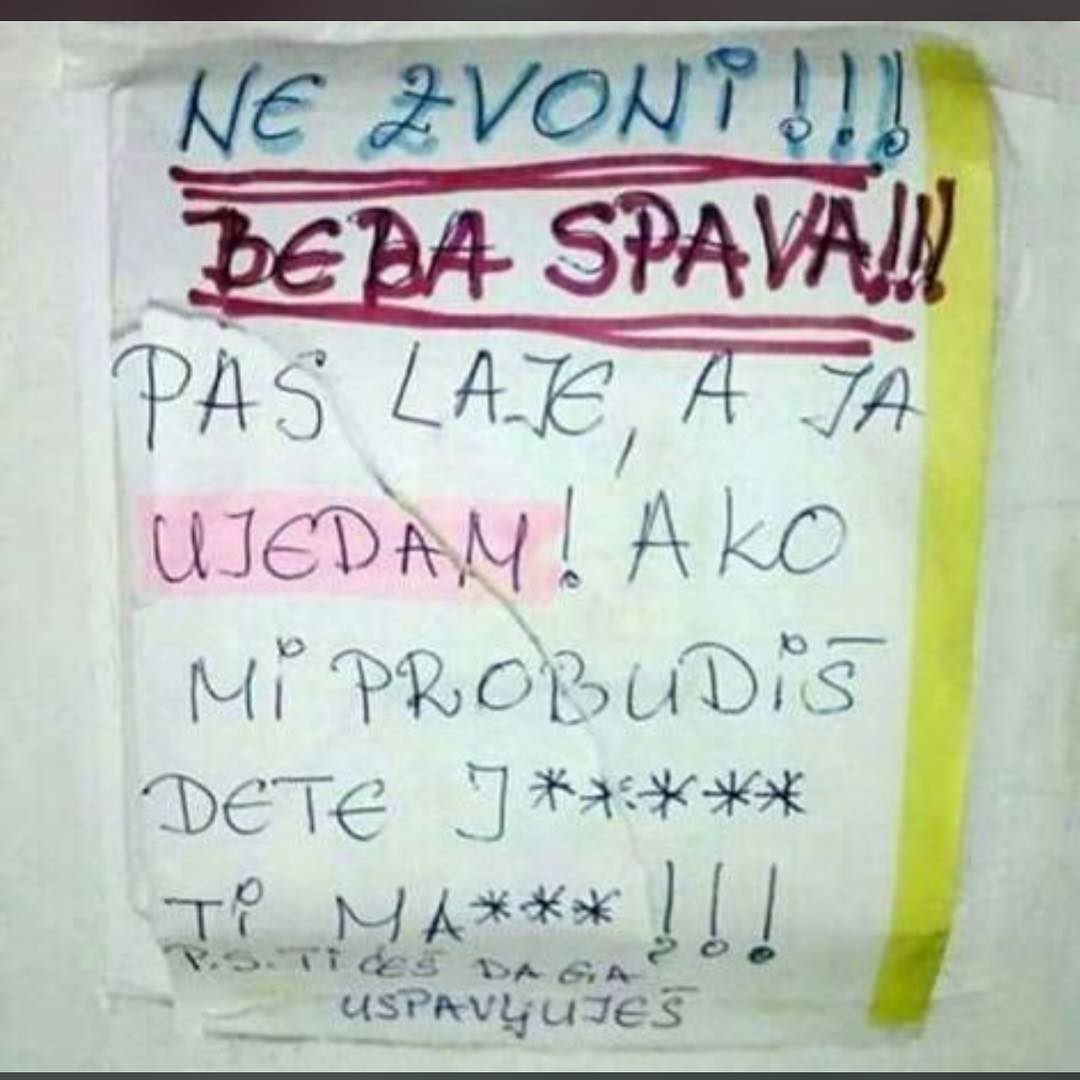 NE ZVONI!!!
BEBA SPAVA!!!
PAS LAJE, A JA
UJEDAM! AKO
MI PROBUDIŠ
DETE J*****
TI MA***!!!
P.S. TI ĆEŠ DA GA
USPAVLJUJEŠ